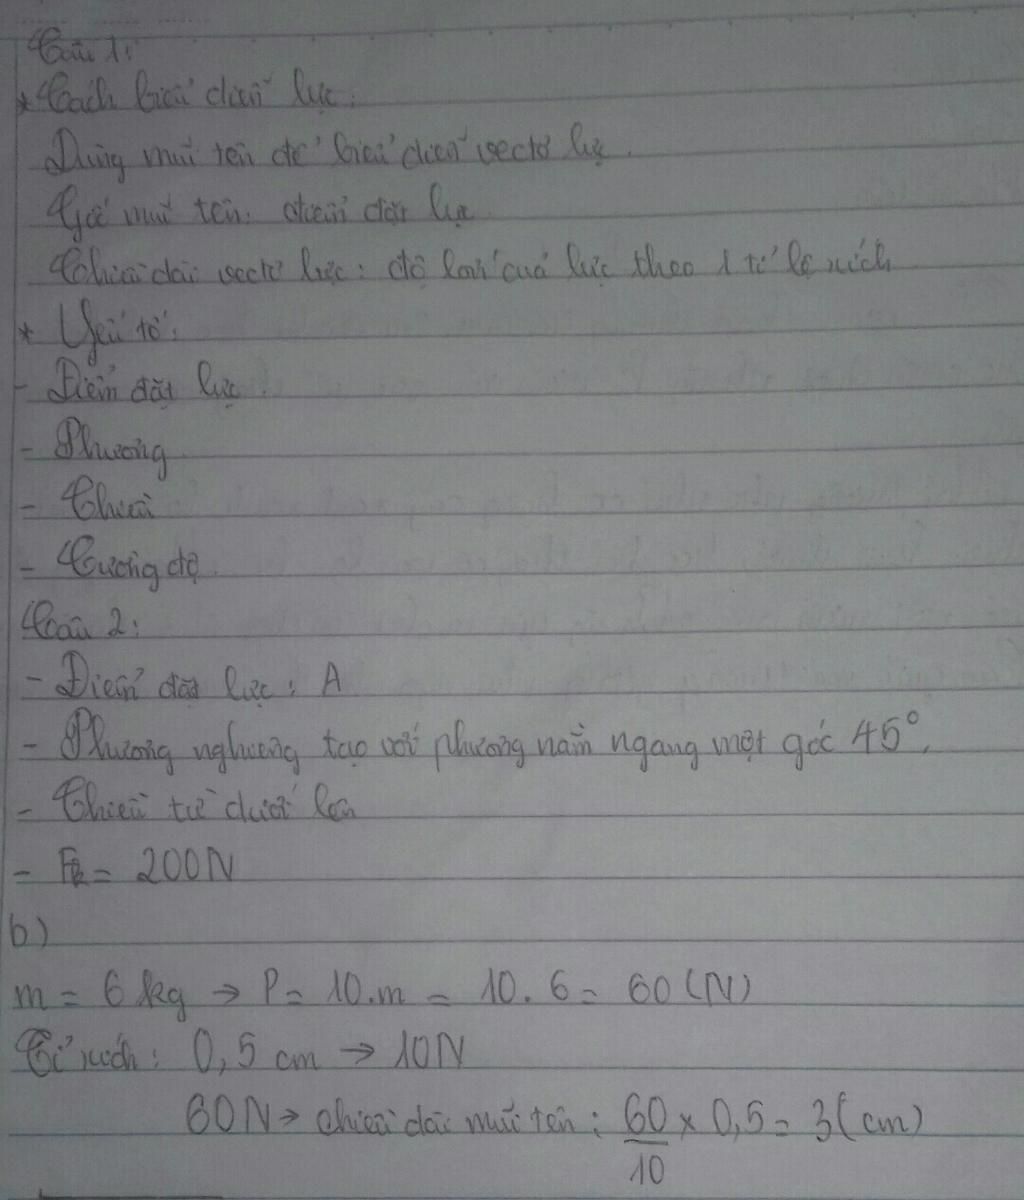 Câu 1:
* Cách biểu diễn lực:
Dùng mũi tên để biểu diễn vectơ lực.
Gốc mũi tên: điểm đặt lực
Chiều dài vectơ lực: độ lớn của lực theo 1 tỉ lệ xích
* Yếu tố:
- Điểm đặt lực.
- Phương
- Chiều
- Cường độ.
Câu 2:
- Điểm đặt lực: A
- Phương nghiêng tạo với phương nằm ngang một góc 45°.
- Chiều từ dưới lên
- Fk = 200N
b)
m = 6 kg → P = 10.m = 10.6 = 60 (N)
Tỉ xích: 0,5 cm → 10N
60N → chiều dài mũi tên: 60/10 × 0,5 = 3 (cm)